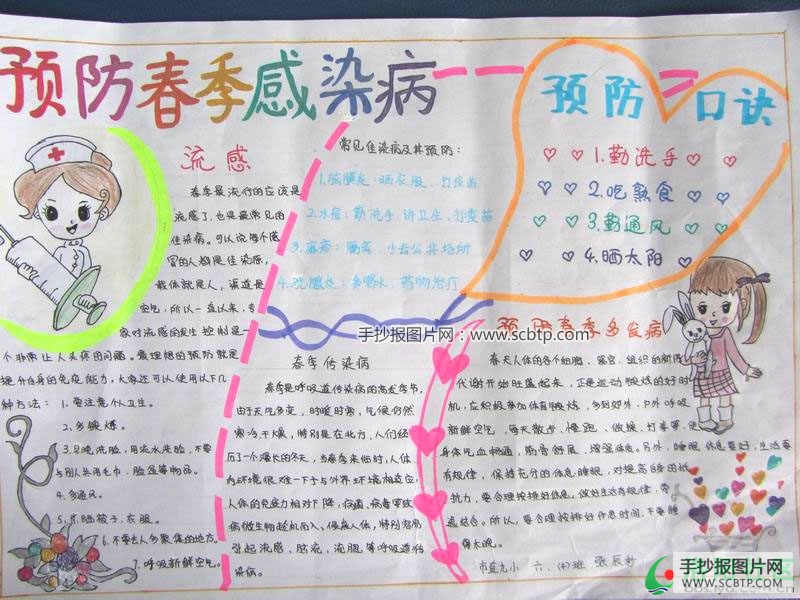 预防春季感染病
流感
春季最流行的应该是
流感了,也是最常见的
传染病。可以说每个感
冒的人都是传染源,
载体就是人,渠道是
空气,所以一直以来,专
家对流感的发生控制是一
个非常让人头疼的问题。最理想的预防就是
提升自身的免疫能力,大家还可以使用以下几
种方法:1.要注意个人卫生。
2.多锻炼。
3.早晚洗脸,用流水洗脸,不要
与别人共用毛巾、脸盆等物品。
4.多通风。
5.常晒被子,衣服。
6.不要去人多聚集的地方。
7.呼吸新鲜空气。
常见传染病及其预防:
1.脑膜炎:晒衣服、打疫苗
2.水痘:勤洗手、讲卫生、打疫苗
3.麻疹:隔离、少去公共场所
4.
:多喝水、药物治疗
预防口诀
1.勤洗手
2.吃熟食
3.勤通风
4.晒太阳
手抄报图片网——www.scbtp.com
春季传染病
春季是呼吸道传染病的高发季节,
由于天气多变,时暖时寒,气候仍然
寒冷干燥,特别是在北方,人们经
历了一个漫长的冬天,当春季来临时,人体
内环境很难一下子与外界环境相适应,
人体的免疫力相对下降,病菌、病毒等致
病微生物趁机而入,侵袭人体,特别容易
引起流感、
等呼吸道传
染病。
预防春季多发病
春天人体的各个细胞、器官、组织的新陈
代谢开始旺盛起来,正是运动锻炼的好时
机,应积极参加体育锻炼,多到郊外、户外呼吸
新鲜空气,每天散步、慢跑、做操、打拳等,使
身体气血畅通,筋骨舒展,增强体质。另外,睡眠休息要好,生活要
有规律,保持充分的休息睡眠,对提高自身的抵
抗力,要合理安排好休息。做好生活有规律,劳
逸结合。所以,要合理安排好作息时间,不要睡
得太晚。
市直九小 六、(4)班 张辰
手抄报图片网
WWW.SCBTP.COM